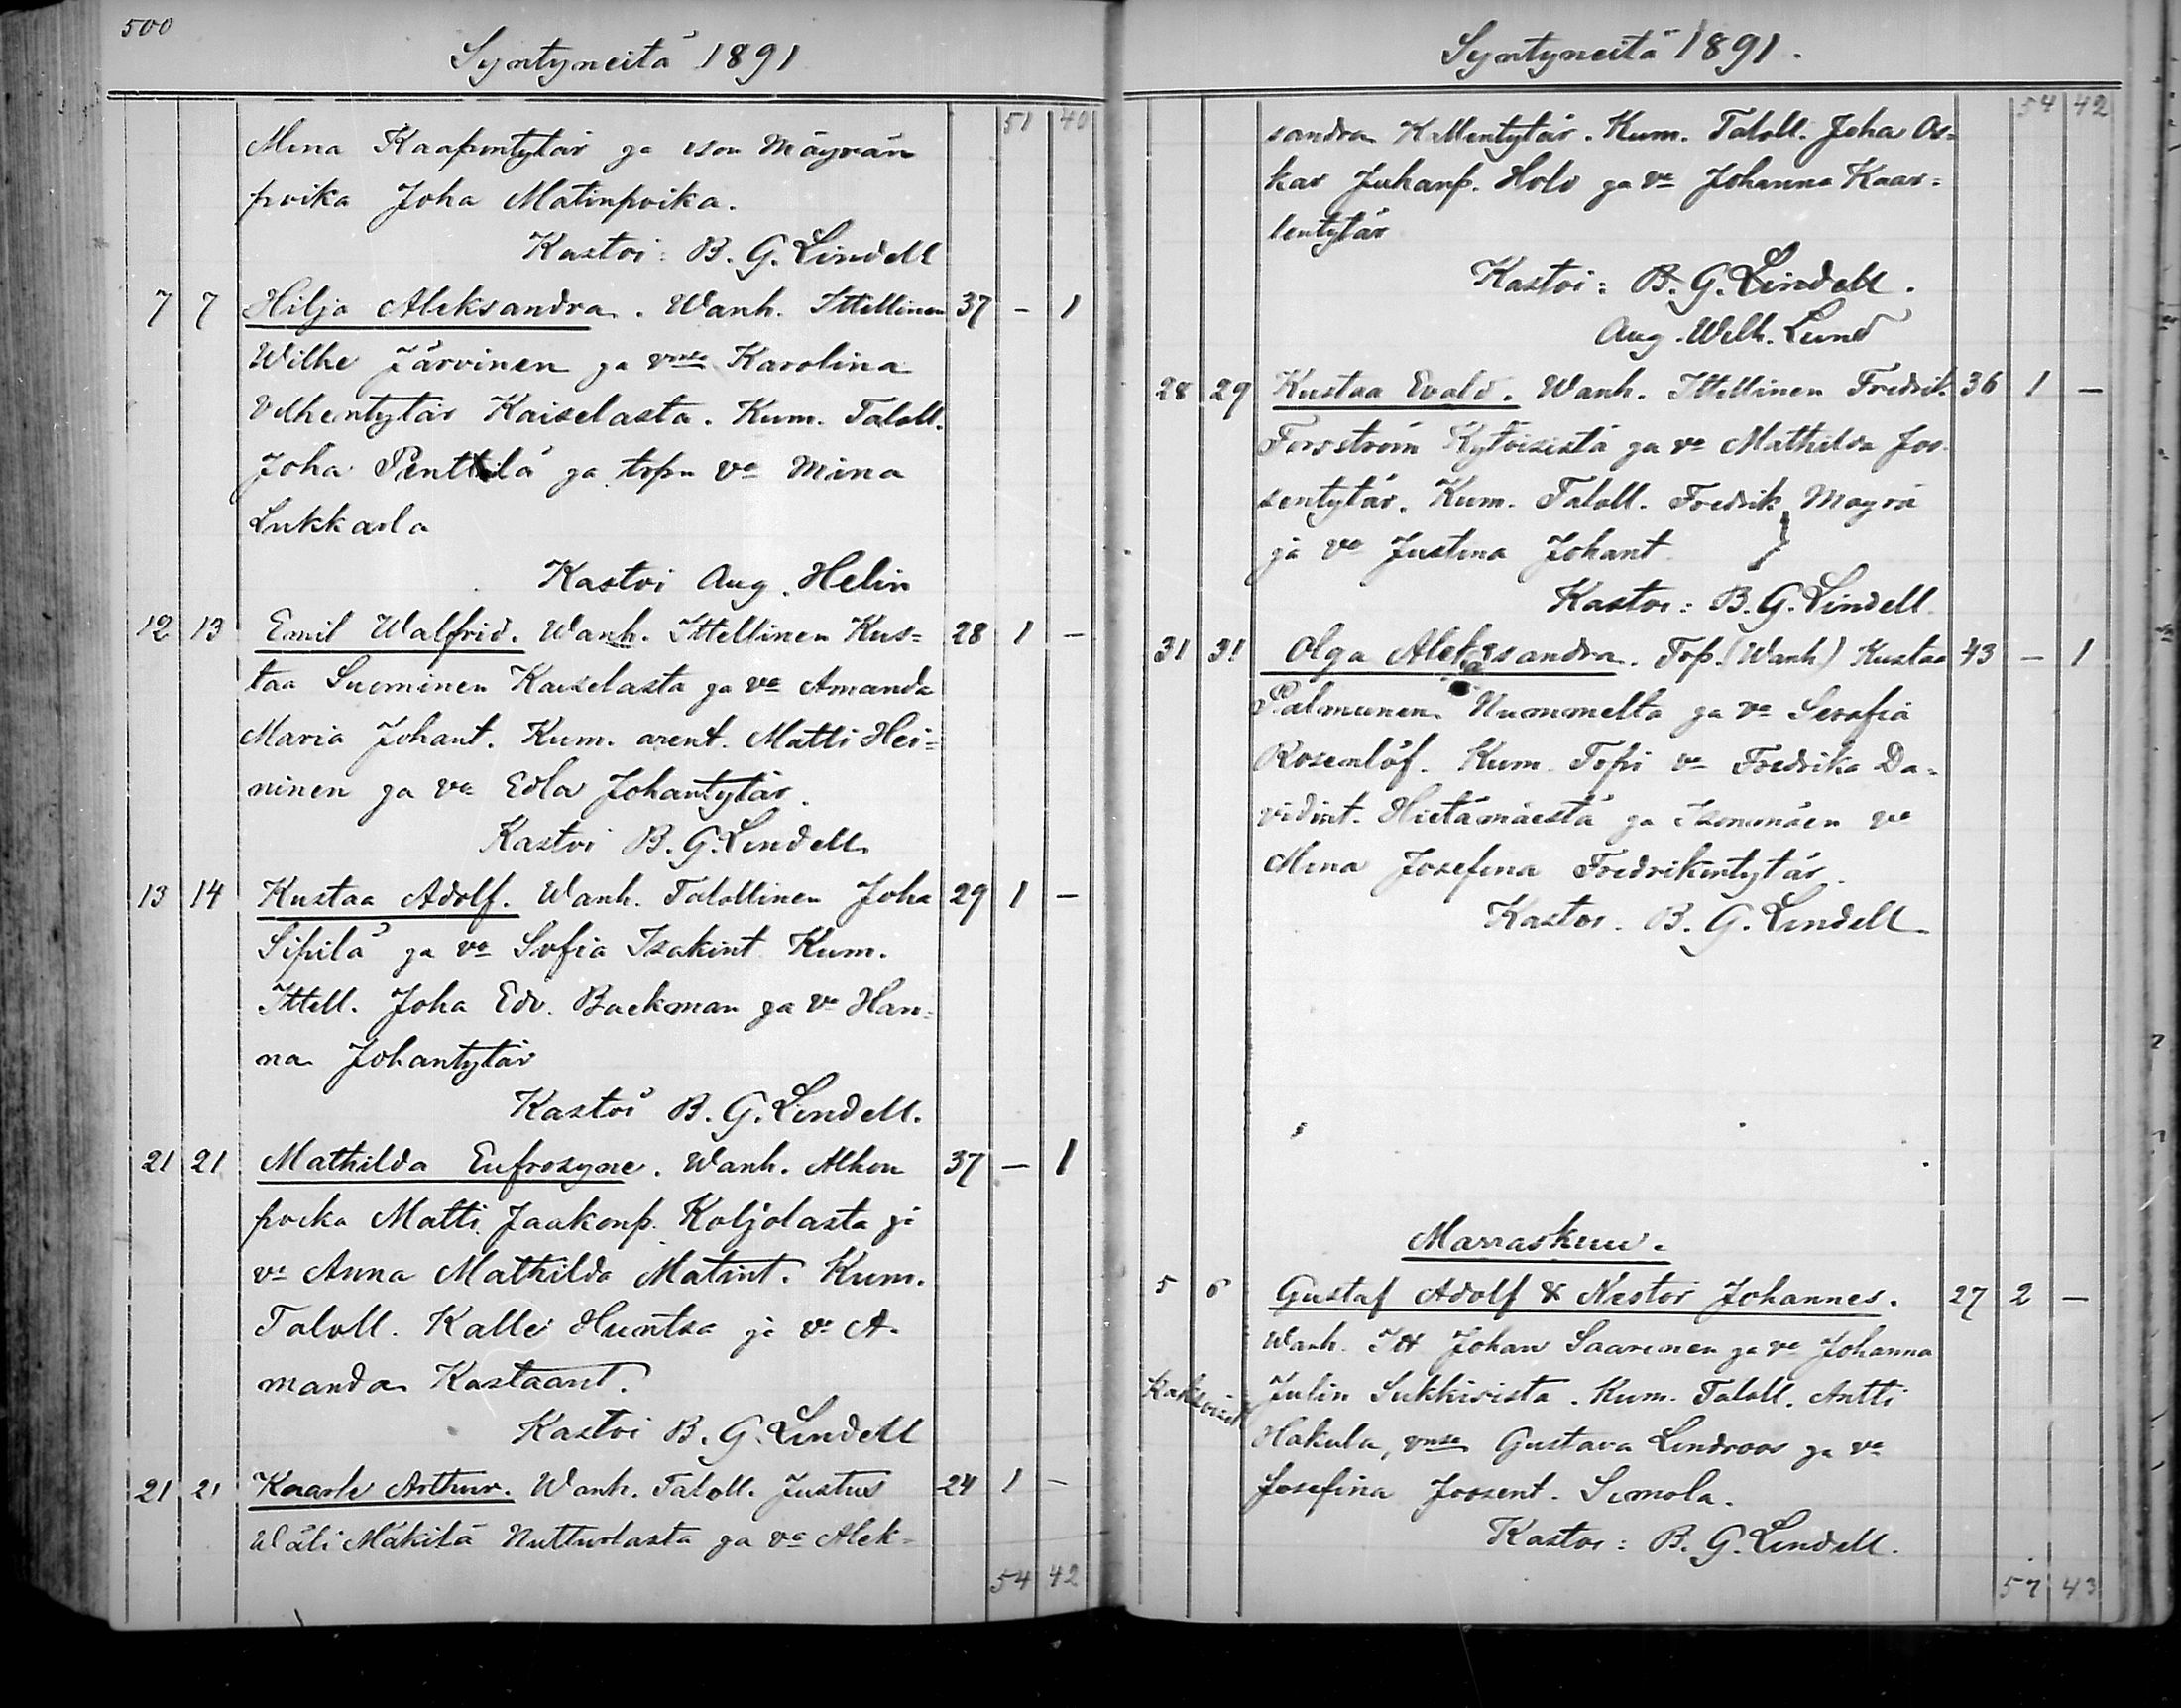 500
Syntyneitä 1891
51 40
Mina Kaapontytär ja ison Mäyrän
poika Joha Matinpoika.
Kastoi: B. G. Lindell
7 7 Hilja Aleksandra. Wanh. Ittellinen 37 - 1
Wilhe Järvinen ja vmsa Karolina
Vilhentytär Kaiselasta. Kum. Taloll.
Joha Penttilä ja topn va Mina
Lukkarla
Kastoi Aug. Helin
12 13 Emil Walfrid. Wanh. Ittellinen Kus= 28 1 -
taa Suominen Kaiselasta ja va Amanda
Maria Johant. Kum. arent. Matti Hei=
ninen ja va Edla Johantytär.
Kastoi B. G. Lindell
13 14 Kustaa Adolf. Wanh. Talollinen Joha 29 1 -
Sipilä ja va Sofia Isakint Kum.
Ittell. Joha Edv. Backman ja va Han=
na Johantytär
Kastoi B. G. Lindell.
21 21 Mathilda Eufrosyne. Wanh. Alhon 37 - 1
poika Matti Jaakonp. Koljolasta ja
va Anna Mathilda Matint. Kum.
Taloll. Kalle Huntsa ja va A-
manda Kustaant.
Kastoi B. G. Lindell
21 21 Kaarle Arthur. Wanh. Taloll. Justus 24 1 -
Wäli Mäkilä Nutturlasta ja va Alek=
54 42
Syntyneitä 1891.
54 42
sandra Kallentytär. Kum. Taloll. Joha Os=
kar Juhanp. Holo ja va Johanna Kaar=
lentytär
Kastoi: B. G. Lindell.
Aug. Wilh. Lund
28 29 Kustaa Evald. Wanh. Ittellinen Fredrik 36 1 -
Forsström Kytöisistä ja va Mathilda Joo-
sentytär. Kum. Taloll. Fredrik Mäyrä
ja va Justina Johant
Kastoi: B. G. Lindell.
31 31 Olga Aleksandra. Top. (Wanh) Kustaa 43 - 1
Palmunen Nummelta ja va Serafia
Rosenlöf. Kum. Topi va Fredrika Da-
vidint. Hietämäestä ja Isonmäen va
Mina Josefina Fredrikintytär.
Kastoi. B. G. Lindell
Marraskuu.
5 6 Gustaf Adolf & Nestor Johannes. 27 2 -
Wanh. Itt Johan Saarinen ja va Johanna
Kaksoiset Julin Sukkisista. Kum. Taloll. Antti
Hakula, vmsa Gustava Lindroos ja va
Josefina Joosent. Simola.
Kastoi: B. G. Lindell.
57 43